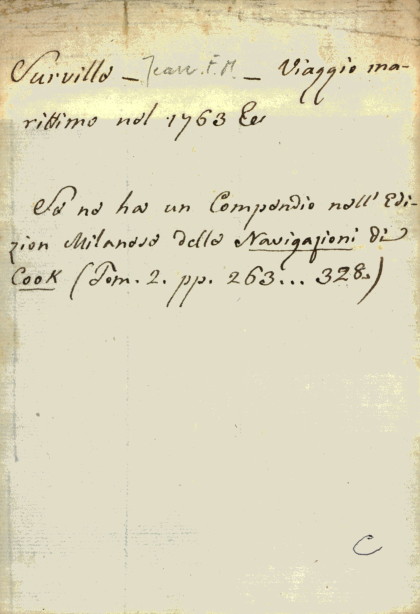 Surville – Jean F. M. – Viaggio ma-
rittimo nel 1763 &c
Se ne ha un Compendio nell' Edi-
zion Milanese delle Navigazioni di
Cook (Tom. 2. pp. 263... 328.)
C